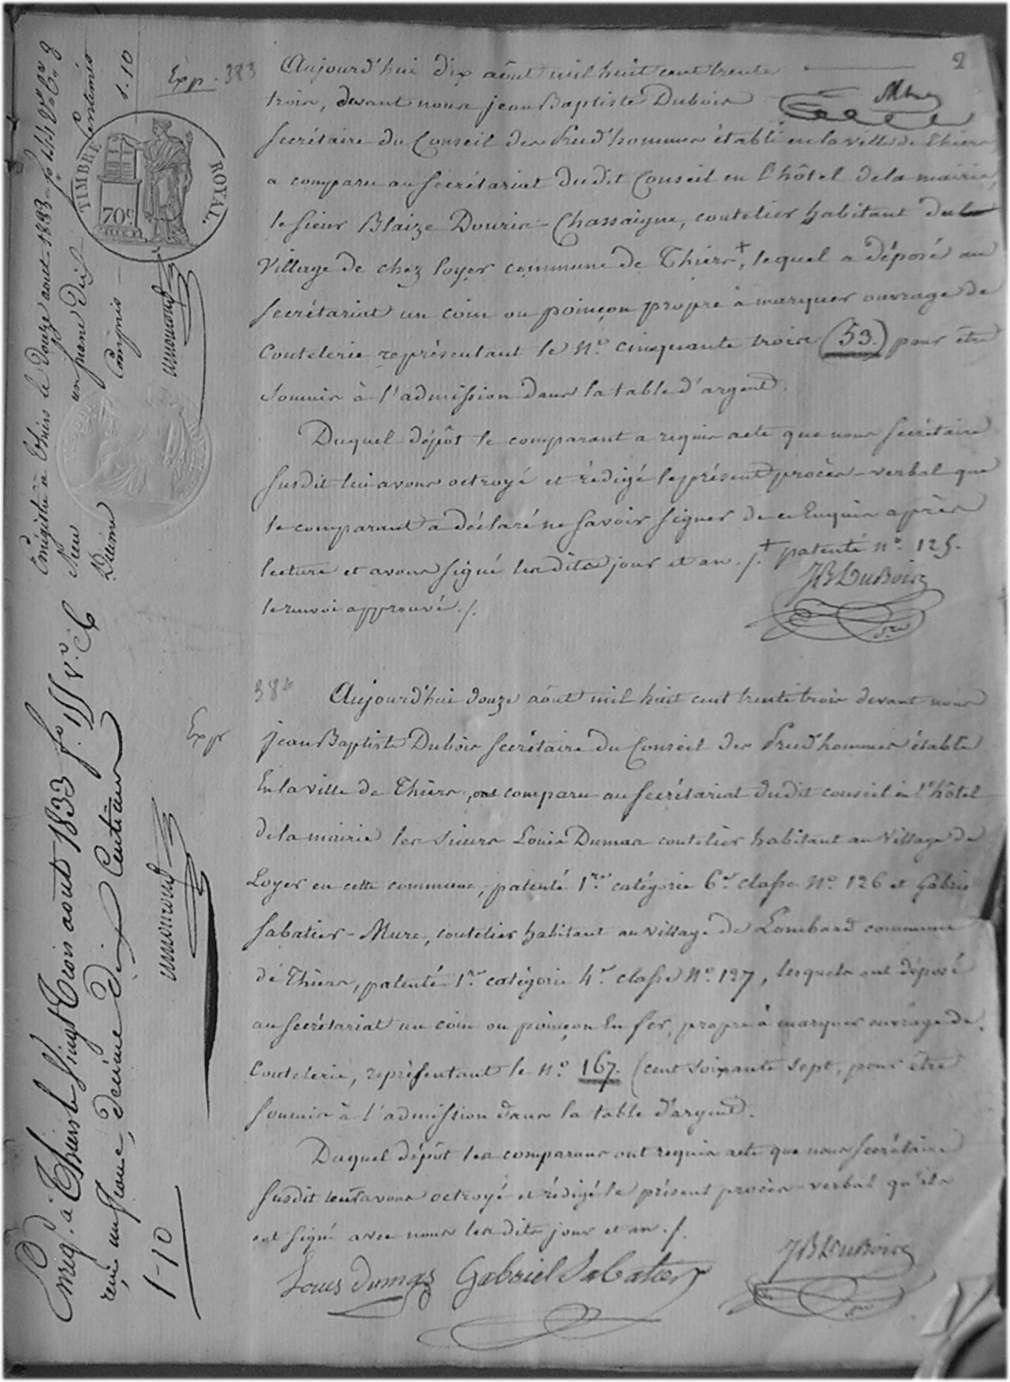 2
Exp. 383
Aujourd'hui dix août mil huit cent trente
trois, devant nous jean Baptiste Dubois
secrétaire du Conseil des Prud'hommes établi en la ville de Thiers
a comparu au secrétariat dudit Conseil en l'hôtel de la mairie,
le sieur Blaize Douris-Chassaigne, coutelier habitant du
village de chez Loyer commune de Thiers +, lequel a déposé au
secrétariat un coin ou poinçon propre à marquer ouvrage de
Coutelerie représentant le N.o cinquante trois (53.) pour être
soumis à l'admission dans la table d'argent.
Duquel dépôt le comparant a requis acte que nous secrétaire
susdit lui avons octroyé et rédigé le présent procès-verbal que
le comparant a déclaré ne savoir signer de ce Enquis après
lecture et avons signé les dits jour et an ./. + patenté n.o 125.
le renvoi approuvé ./.
JB Dubois
384
Exp
Aujourd'hui douze août mil huit cent trente trois devant nous
jean Baptiste Dubois secrétaire du Conseil des Prud'hommes établi
En la ville de Thiers, ont comparu au secrétariat dudit conseil en l'hôtel
de la mairie les sieurs Louis Dumas coutelier habitant au village de
Loyer en cette commune, patenté 1.re catégorie 6.e classe N.o 126 et Gabriel
Sabatier-Mure, coutelier habitant au village de Lombard commune
de Thiers, patenté 1.re catégorie 4.e classe N.o 127, lesquels ont déposé
au secrétariat un coin ou poinçon En fer, propre à marquer ouvrage de
Coutelerie, représentant le N.o 167. (cent soixante sept, pour être
soumis à l'admission dans la table d'argent.
Duquel dépôt les comparans ont requis acte que nous secrétaire
susdit leur avons octroyé et rédigé le présent procès-verbal qu'ils
ont signé avec nous les dits jour et an ./.
Louis dumas Gabriel Sabatier
JB Dubois
TIMBRE ROYAL.
70c
Enregistré à Thiers le Douze aout 1833 f.o 144
Reçu un franc Dix centimes
Décime Compris
1.10
Enreg.é à Thiers le Vingt Trois aout 1833 f.o 155 v.o
reçu un franc, décime dix Centimes
1-10